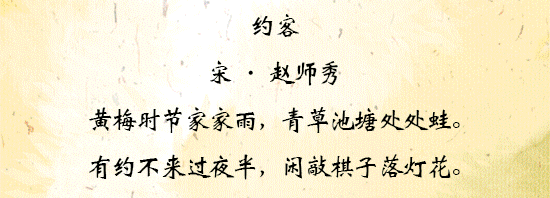 约客
宋 · 赵师秀
黄梅时节家家雨，青草池塘处处蛙。
有约不来过夜半，闲敲棋子落灯花。